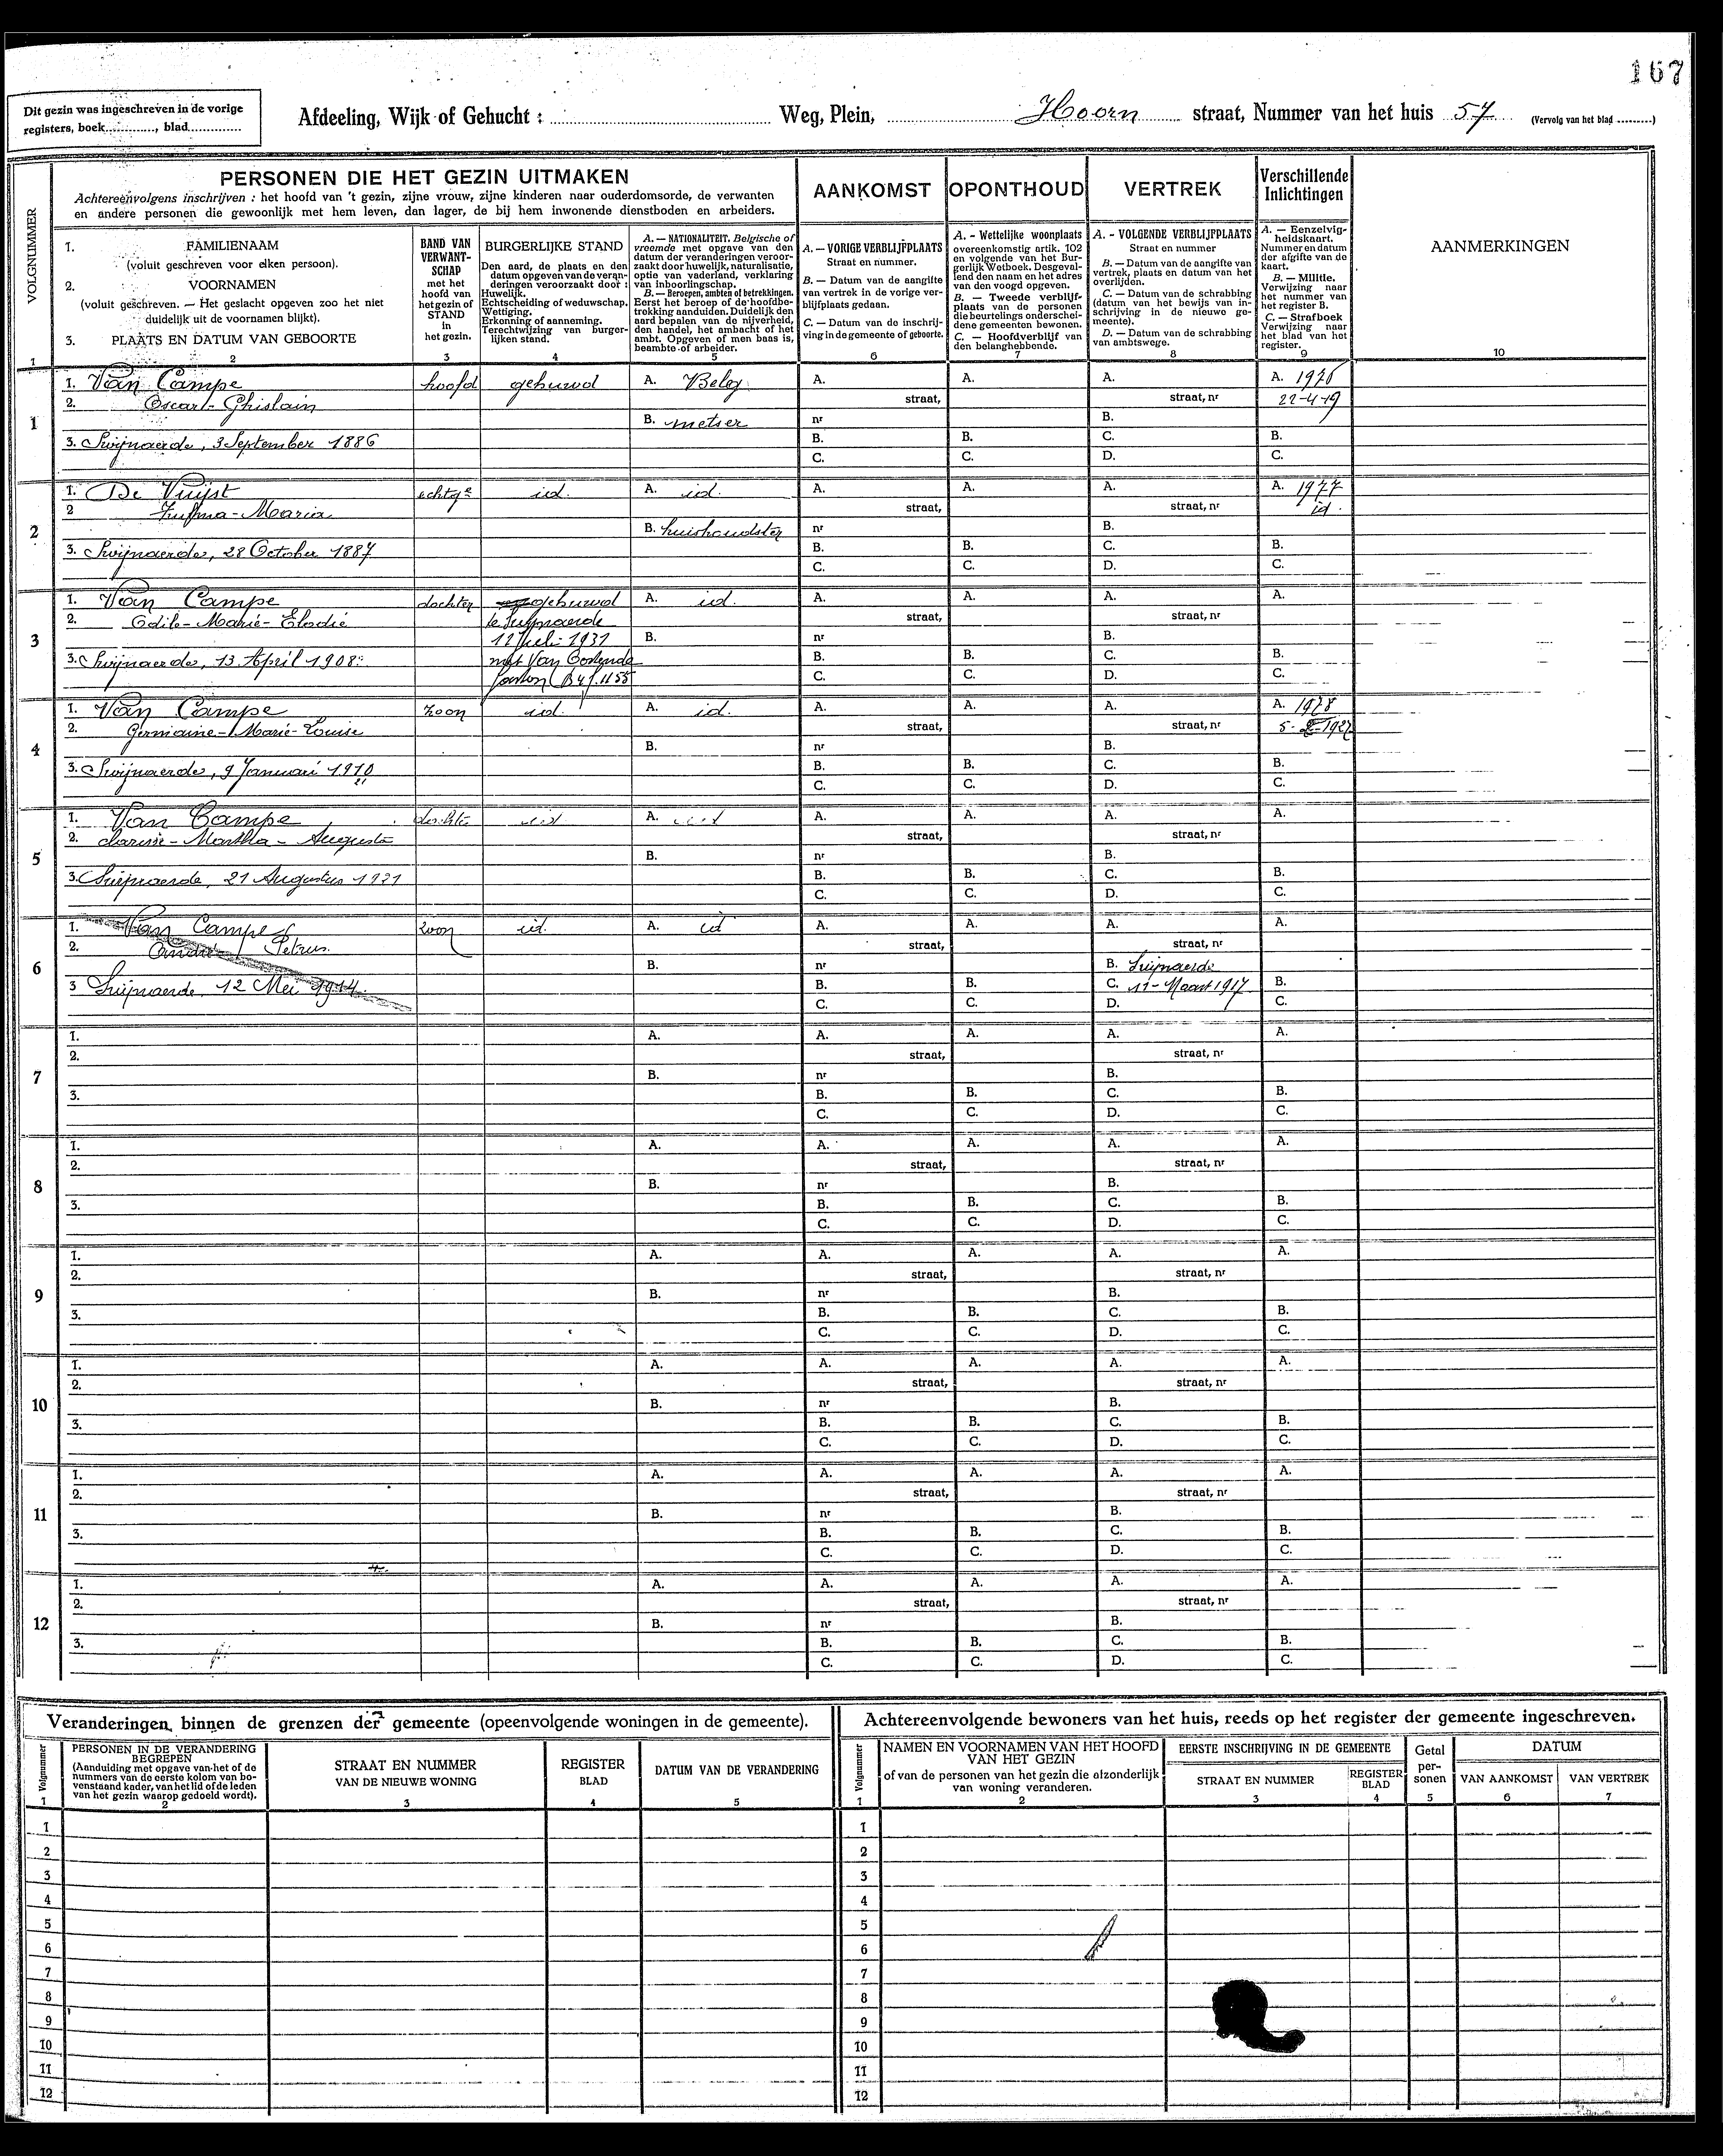 167
Dit gezin was ingeschreven in de vorige
registers, boek............, blad.............
Afdeeling, Wijk of Gehucht : ........ Weg, Plein, ........ Hoorn ........ straat, Nummer van het huis 57 (Vervolg van het blad .........)
VOLGNUMMER
1
PERSONEN DIE HET GEZIN UITMAKEN
Achtereenvolgens inschrijven : het hoofd van 't gezin, zijne vrouw, zijne kinderen naar ouderdomsorde, de verwanten
en andere personen die gewoonlijk met hem leven, dan lager, de bij hem inwonende dienstboden en arbeiders.
1. FAMILIENAAM
(voluit geschreven voor elken persoon).
2. VOORNAMEN
(voluit geschreven. — Het geslacht opgeven zoo het niet
duidelijk uit de voornamen blijkt).
3. PLAATS EN DATUM VAN GEBOORTE
2
BAND VAN
VERWANT-
SCHAP
met het
hoofd van
het gezin of
STAND
in
het gezin.
3
BURGERLIJKE STAND
Den aard, de plaats en den
datum opgeven van de veran-
deringen veroorzaakt door :
Huwelijk.
Echtscheiding of weduwschap.
Wettiging.
Erkenning of aanneming.
Terechtwijzing van burger-
lijken stand.
4
A. — NATIONALITEIT. Belgische of
vreemde met opgave van den
datum der veranderingen veroor-
zaakt door huwelijk, naturalisatie,
optie van vaderland, verklaring
van inboorlingschap.
B. — Beroepen, ambten of betrekkingen.
Eerst het beroep of de hoofdbe-
trekking aanduiden. Duidelijk den
aard bepalen van de nijverheid,
den handel, het ambacht of het
ambt. Opgeven of men baas is,
beambte of arbeider.
5
AANKOMST
A. — VORIGE VERBLIJFPLAATS
Straat en nummer.
B. — Datum van de aangifte
van vertrek in de vorige ver-
blijfplaats gedaan.
C. — Datum van de inschrij-
ving in de gemeente of geboorte.
6
OPONTHOUD
A. - Wettelijke woonplaats
overeenkomstig artik. 102
en volgende van het Bur-
gerlijk Wetboek. Desgeval-
lend den naam en het adres
van den voogd opgeven.
B. — Tweede verblijf-
plaats van de personen
die beurtelings onderschei-
dene gemeenten bewonen.
C. — Hoofdverblijf van
den belanghebbende.
7
VERTREK
A. - VOLGENDE VERBLIJFPLAATS
Straat en nummer
B. — Datum van de aangifte van
vertrek, plaats en datum van het
overlijden.
C. — Datum van de schrabbing
(datum van het bewijs van in-
schrijving in de nieuwe ge-
meente).
D. — Datum van de schrabbing
van ambtswege.
8
Verschillende
Inlichtingen
A. — Eenzelvig-
heidskaart.
Nummer en datum
der afgifte van de
kaart.
B. — Militie.
Verwijzing naar
het nummer van
het register B.
C. — Strafboek
Verwijzing naar
het blad van het
register.
9
AANMERKINGEN
10
1
1. Van Campe hoofd gehuwd A. Belg A. A. A. A. 1976
2. Oscar-Ghislain straat, straat, nr 22-4-19
B. metser nr B.
3. Swijnaerde, 3 September 1886 B. B. C. B.
C. C. D. C.
2
1. De Vuijst echtge id. A. id. A. A. A. A. 1977
2 Zulma-Maria straat, straat, nr id.
B. huishoudster nr B.
3. Swijnaerde, 28 October 1887 B. B. C. B.
C. C. D. C.
3
1. Van Campe dochter gehuwd A. id. A. A. A. A.
2. Odile-Marie-Elodie te Swijnaerde straat, straat, nr
11 Juli 1931 B. nr B.
3. Swijnaerde, 13 April 1908. met Van Oostende B. B. C. B.
Gaston (B4 f. 1155 C. C. D. C.
4
1. Van Campe zoon id. A. id. A. A. A. A. 1978
2. Germaine-Marie-Louise straat, straat, nr
B. nr B.
3. Swijnaerde, 9 Januari 1910 B. B. C. B.
C. C. D. C.
5
1. Van Campe dochte id A. id A. A. A. A.
2. Clarisse-Martha-Augusta straat, straat, nr
B. nr B.
3. Swijnaerde, 21 Augustus 1921 B. B. C. B.
C. C. D. C.
6
1. Van Campe zoon id. A. id A. A. A. A.
2. André Petrus. straat, straat, nr
B. nr B. Swijnaerde
3 Swijnaerde, 12 Mei 1914. B. B. C. 11-Maart 1917 B.
C. C. D. C.
7
1. A. A. A. A. A.
2. straat, straat, nr
B. nr B.
3. B. B. C. B.
C. C. D. C.
8
1. A. A. A. A. A.
2. straat, straat, nr
B. nr B.
3. B. B. C. B.
C. C. D. C.
9
1. A. A. A. A. A.
2. straat, straat, nr
B. nr B.
3. B. B. C. B.
C. C. D. C.
10
1. A. A. A. A. A.
2. straat, straat, nr
B. nr B.
3. B. B. C. B.
C. C. D. C.
11
1. A. A. A. A. A.
2. straat, straat, nr
B. nr B.
3. B. B. C. B.
C. C. D. C.
12
1. A. A. A. A. A.
2. straat, straat, nr
B. nr B.
3. B. B. C. B.
C. C. D. C.
Veranderingen binnen de grenzen der gemeente (opeenvolgende woningen in de gemeente).
Volgnummer
1
PERSONEN IN DE VERANDERING
BEGREPEN
(Aanduiding met opgave van het of de
nummers van de eerste kolom van bo-
venstaand kader, van het lid of de leden
van het gezin waarop gedoeld wordt).
2
STRAAT EN NUMMER
VAN DE NIEUWE WONING
3
REGISTER
BLAD
4
DATUM VAN DE VERANDERING
5
1
2
3
4
5
6
7
8
9
10
11
12
Achtereenvolgende bewoners van het huis, reeds op het register der gemeente ingeschreven.
Volgnummer
1
NAMEN EN VOORNAMEN VAN HET HOOFD
VAN HET GEZIN
of van de personen van het gezin die afzonderlijk
van woning veranderen.
2
EERSTE INSCHRIJVING IN DE GEMEENTE
STRAAT EN NUMMER
3
REGISTER
BLAD
4
Getal
per-
sonen
5
DATUM
VAN AANKOMST
6
VAN VERTREK
7
1
2
3
4
5
6
7
8
9
10
11
12